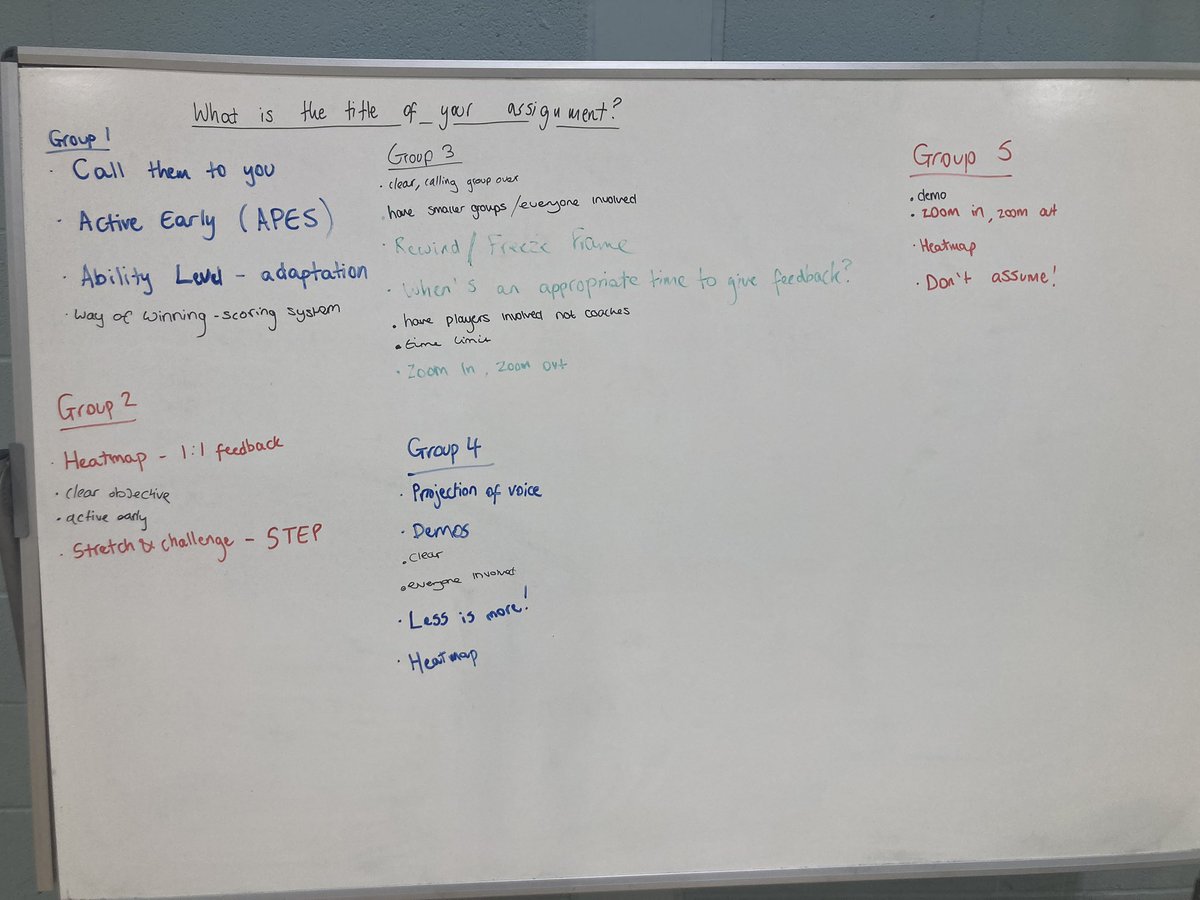 What is the title of your assignment?
Group 1
· Call them to you
· Active Early (APES)
· Ability Level - adaptation
· way of winning - scoring system
Group 2
· Heatmap - 1:1 feedback
· clear objective
· active early
· Stretch & challenge - STEP
Group 3
· clear, calling group over
· have smaller groups / everyone involved
· Rewind / Freeze Frame
· When's an appropriate time to give feedback?
· have players involved not coaches
· time limit
· Zoom in, zoom out
Group 4
· Projection of voice
· Demos
· clear
· everyone involved
· Less is more!
· Heatmap
Group 5
· demo
· zoom in, zoom out
· Heatmap
· Don't assume!